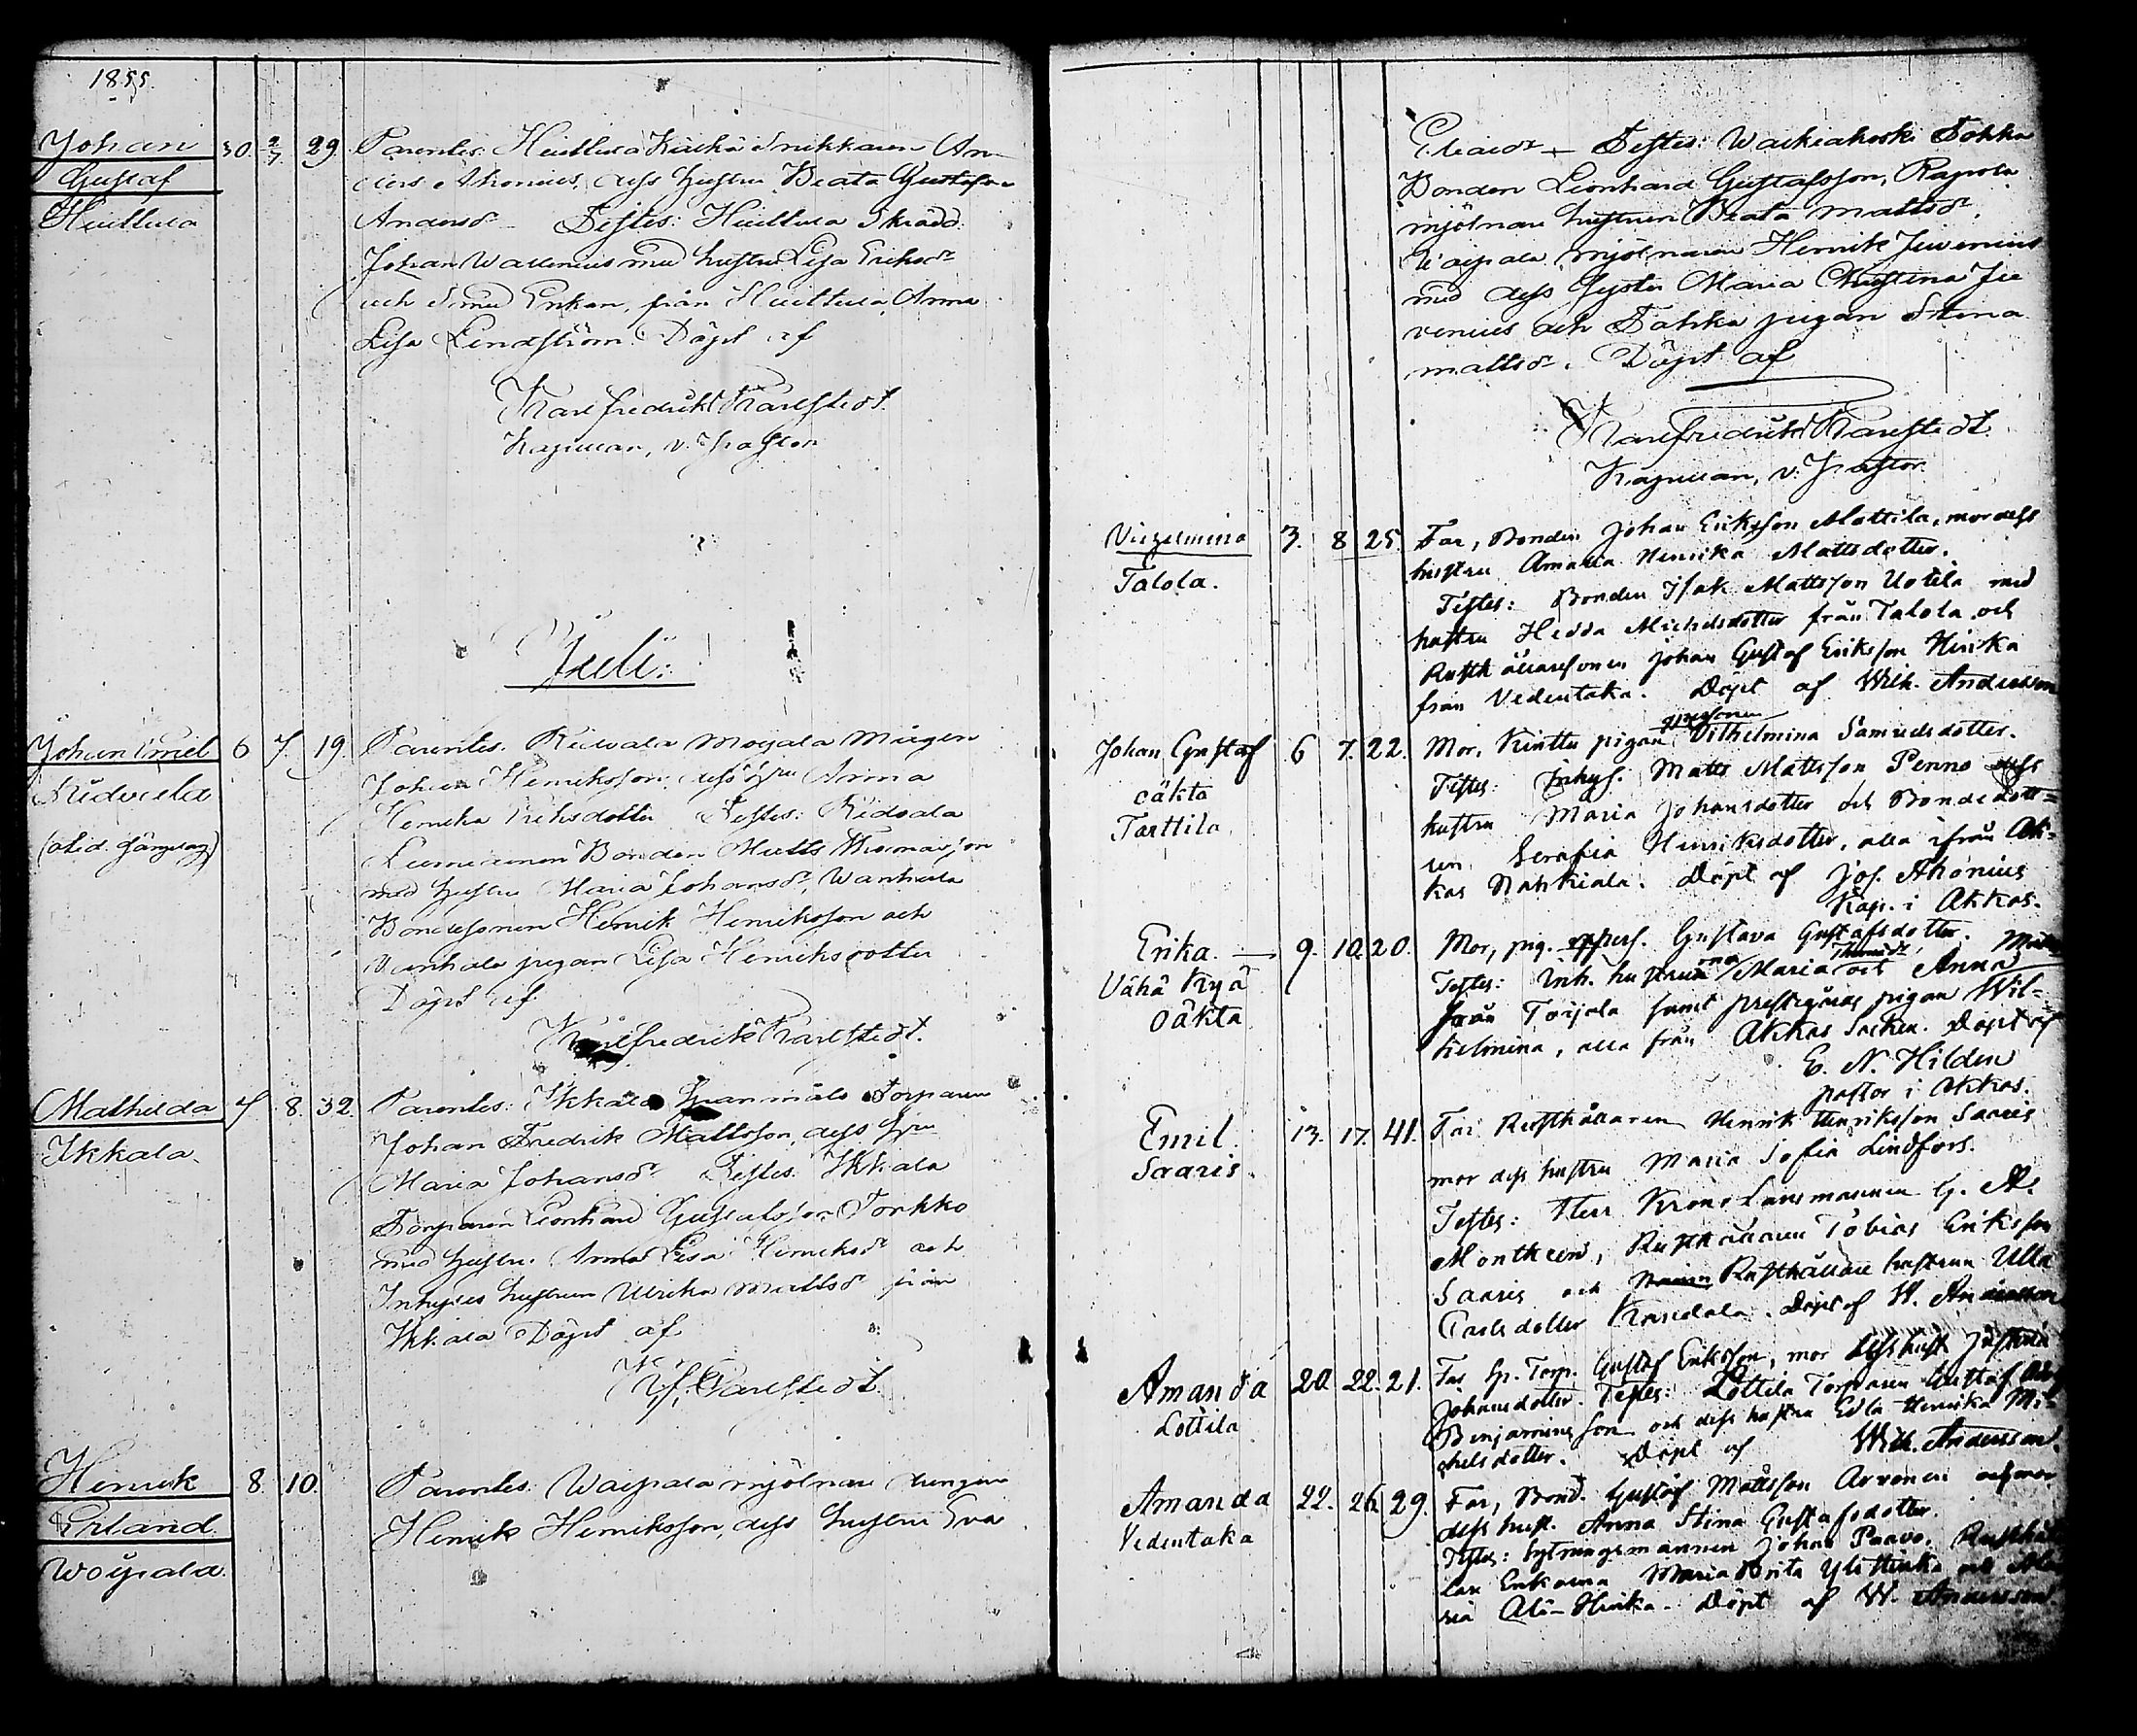 1855.
Johan 30. 2/7. 29. Parentes: Huittula Kärki Snikkaren An-
Gustaf ders Ahonius, dess hustru Beata Gustafva
Huittula Andersdr Testes: Huittula Skrädd.
Johan Wallenius med hustru Lisa Eriksdr
och Smed Enkan, från Huittula, Anna
Lisa Lindström. Döpt af
Karl Fredrik Karlstedt.
Kapellan, v. Pastor
Juli:
Johan Emil 6 7. 19. Parentes.
Johan Henriksson, dess hru Anna
Henrika Eriksdotter Testes: Ridvala
Bonden Matts Thomasson
med hustru Maria Johansdr, Wanhala
Bondesonen Henrik Henriksson och
Wanhala pigan Lisa Henriksdotter
Döpt af
Karl Fredrik Karlstedt.
Mathilda 7 8. 32. Parentes: Ikkala Torparen
Ikkala. Johan Fredrik Mattsson, dess hru
Maria Johansdr Testes: Ikkala
Torparen Leonhard Gustafsson Torkko
med hustru Anna Lisa Henriksdr och
Inhyses hustrun Ulrika Mattsdr från
Ikkala Döpt af
K. f. Karlstedt.
Henrik 8. 10. Parentes: Woipala mjölnare drengen
Erland Henrik Henriksson, dess hustru Eva
Woipala.
Eliaedr Testes: Waikiakoski Tokka
Bonden Leonhard Gustafsson, Rapola
mjölnare hustrun Beata Mattsdr,
Woipala mjölnaren Henrik Juvenius
med dess Syster Maria Christina Ju
venius och Tokka pigan Stina
Mattsdr. Döpt af
Karl Fredrik Karlstedt.
Kapellan, v. Pastor.
Vilhelmina 3. 8 25. Far, Bonden Johan Eriksson Mattila, mor dess
Talola. hustru Amalia Henrika Mattsdotter.
Testes: Bonden Isak Mattsson Uotila med
hustru Hedda Michelsdotter från Talola och
Rusthållaresonen Johan Gustaf Eriksson Hinka
från Vedentaka. Döpt af Wilh. Andersson
Johan Gustaf 6 7. 22. Mor, Kinttu pigan qvpersonen Vilhelmina Samuelsdotter.
oäkta Testes: Inhys. Matts Mattsson Penno dess
Tarttila hustru Maria Johansdotter och Bondedott=
ren Serafia Henriksdotter, alla ifrån Ak-
kas Nahkiala. Döpt af Jos. Ahonius
Kap. i Akkas.
Erika. 9. 10. 20. Mor, pig. Gustava Gustafsdotter.
Vähä Kyä Testes: Inh. hustruna Maria och Anna
oäkta från Toijala samt prestgårds pigan Wil=
helmina, alla från Akkas Socken. Döpt af
E. N. Hilden
pastor i Akkas.
Emil. 13. 17. 41. Far Rusthållaren Henrik Henriksson Saaris
Saaris. mor dess hustru Maria Sofia Lindfors.
Testes: Herr Krono Länsmannen G. A.
Montheen, Rusthållaren Tobias Eriksson
Saaris och Rusthållare hustrun Ulla
Carlsdotter. Döpt af W. Andersson
Amanda 20. 22. 21. Far Sp. Torp. Gustaf Eriksson, mor dess hust. Justina
Lottila Johansdotter. Testes: Lottila Torparen Gustaf
Benjaminsson och dess hustru Edla Henrika Mi-
chelsdotter. Döpt af Wilh. Andersson.
Amanda 22. 26. 29. Far, Bond. Gustaf Mattsson Arvonen och mor
Vedentaka dess hust. Anna Stina Gustafsdotter.
Testes: Sytningsmannen Johan Paavo, Rusthål-
lare Enkorna Maria Brita Ylittenka och Ma-
ria Ali-Hinka. Döpt af W. Andersson